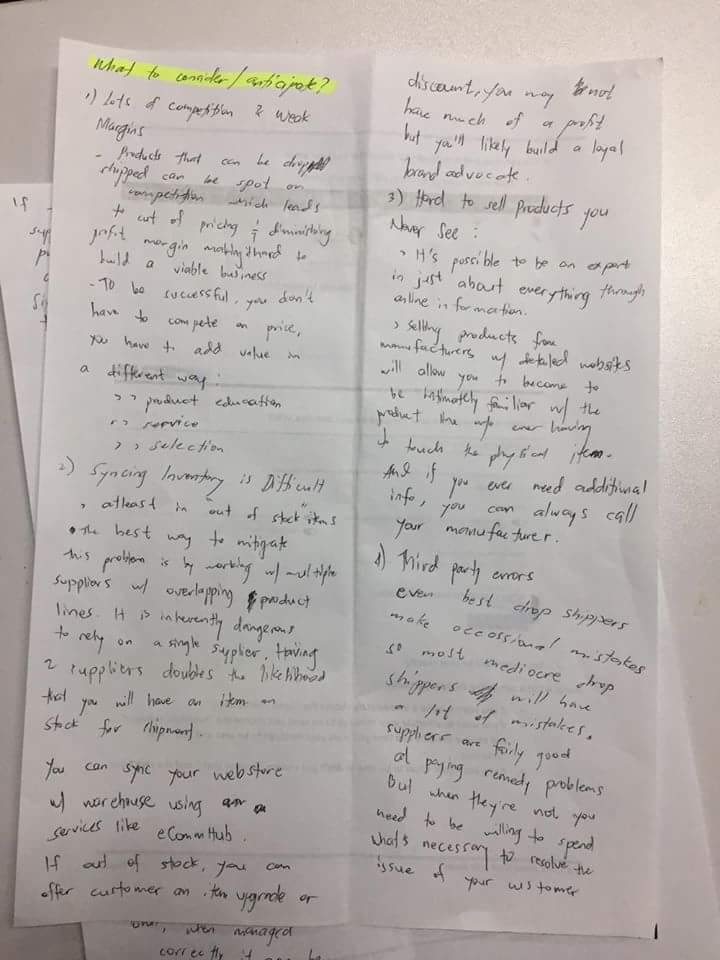 What to consider/anticipate?
1) Lots of competition & weak
Margins
- Products that can be drop
shipped can be spot on
competition which leads
to cut of pricing & diminishing
profit margin making it hard to
build a viable business
- To be successful, you don't
have to compete on price,
you have to add value in
a different way:
>> product education
>> service
>> selection
2) Syncing Inventory is Difficult
> atleast in "out of stock" items
• The best way to mitigate
this problem is by working w/ multiple
suppliers w/ overlapping product
lines. It is inherently dangerous
to rely on a single supplier. Having
2 suppliers doubles the likelihood
that you will have an item on
stock for shipment.
You can sync your webstore
w/ warehouse using a
services like eCommHub.
If out of stock, you can
offer customer an item upgrade or
discount, you may not
have much of a profit
but you'll likely build a loyal
brand advocate.
3) Hard to sell products you
Never See:
> It's possible to be an expert
in just about everything through
online information.
> selling products from
manufacturers w/ detailed websites
will allow you to become to
be intimately familiar w/ the
product line w/o ever having
to touch the physical item.
And if you ever need additional
info, you can always call
your manufacturer.
4) Third party errors
even best drop shippers
make occassional mistakes
so most mediocre drop
shippers will have
a lot of mistakes.
suppliers are fairly good
at paying remedy problems
But when they're not you
need to be willing to spend
what's necessary to resolve the
issue of your customer
If
when managed
correctly it can be